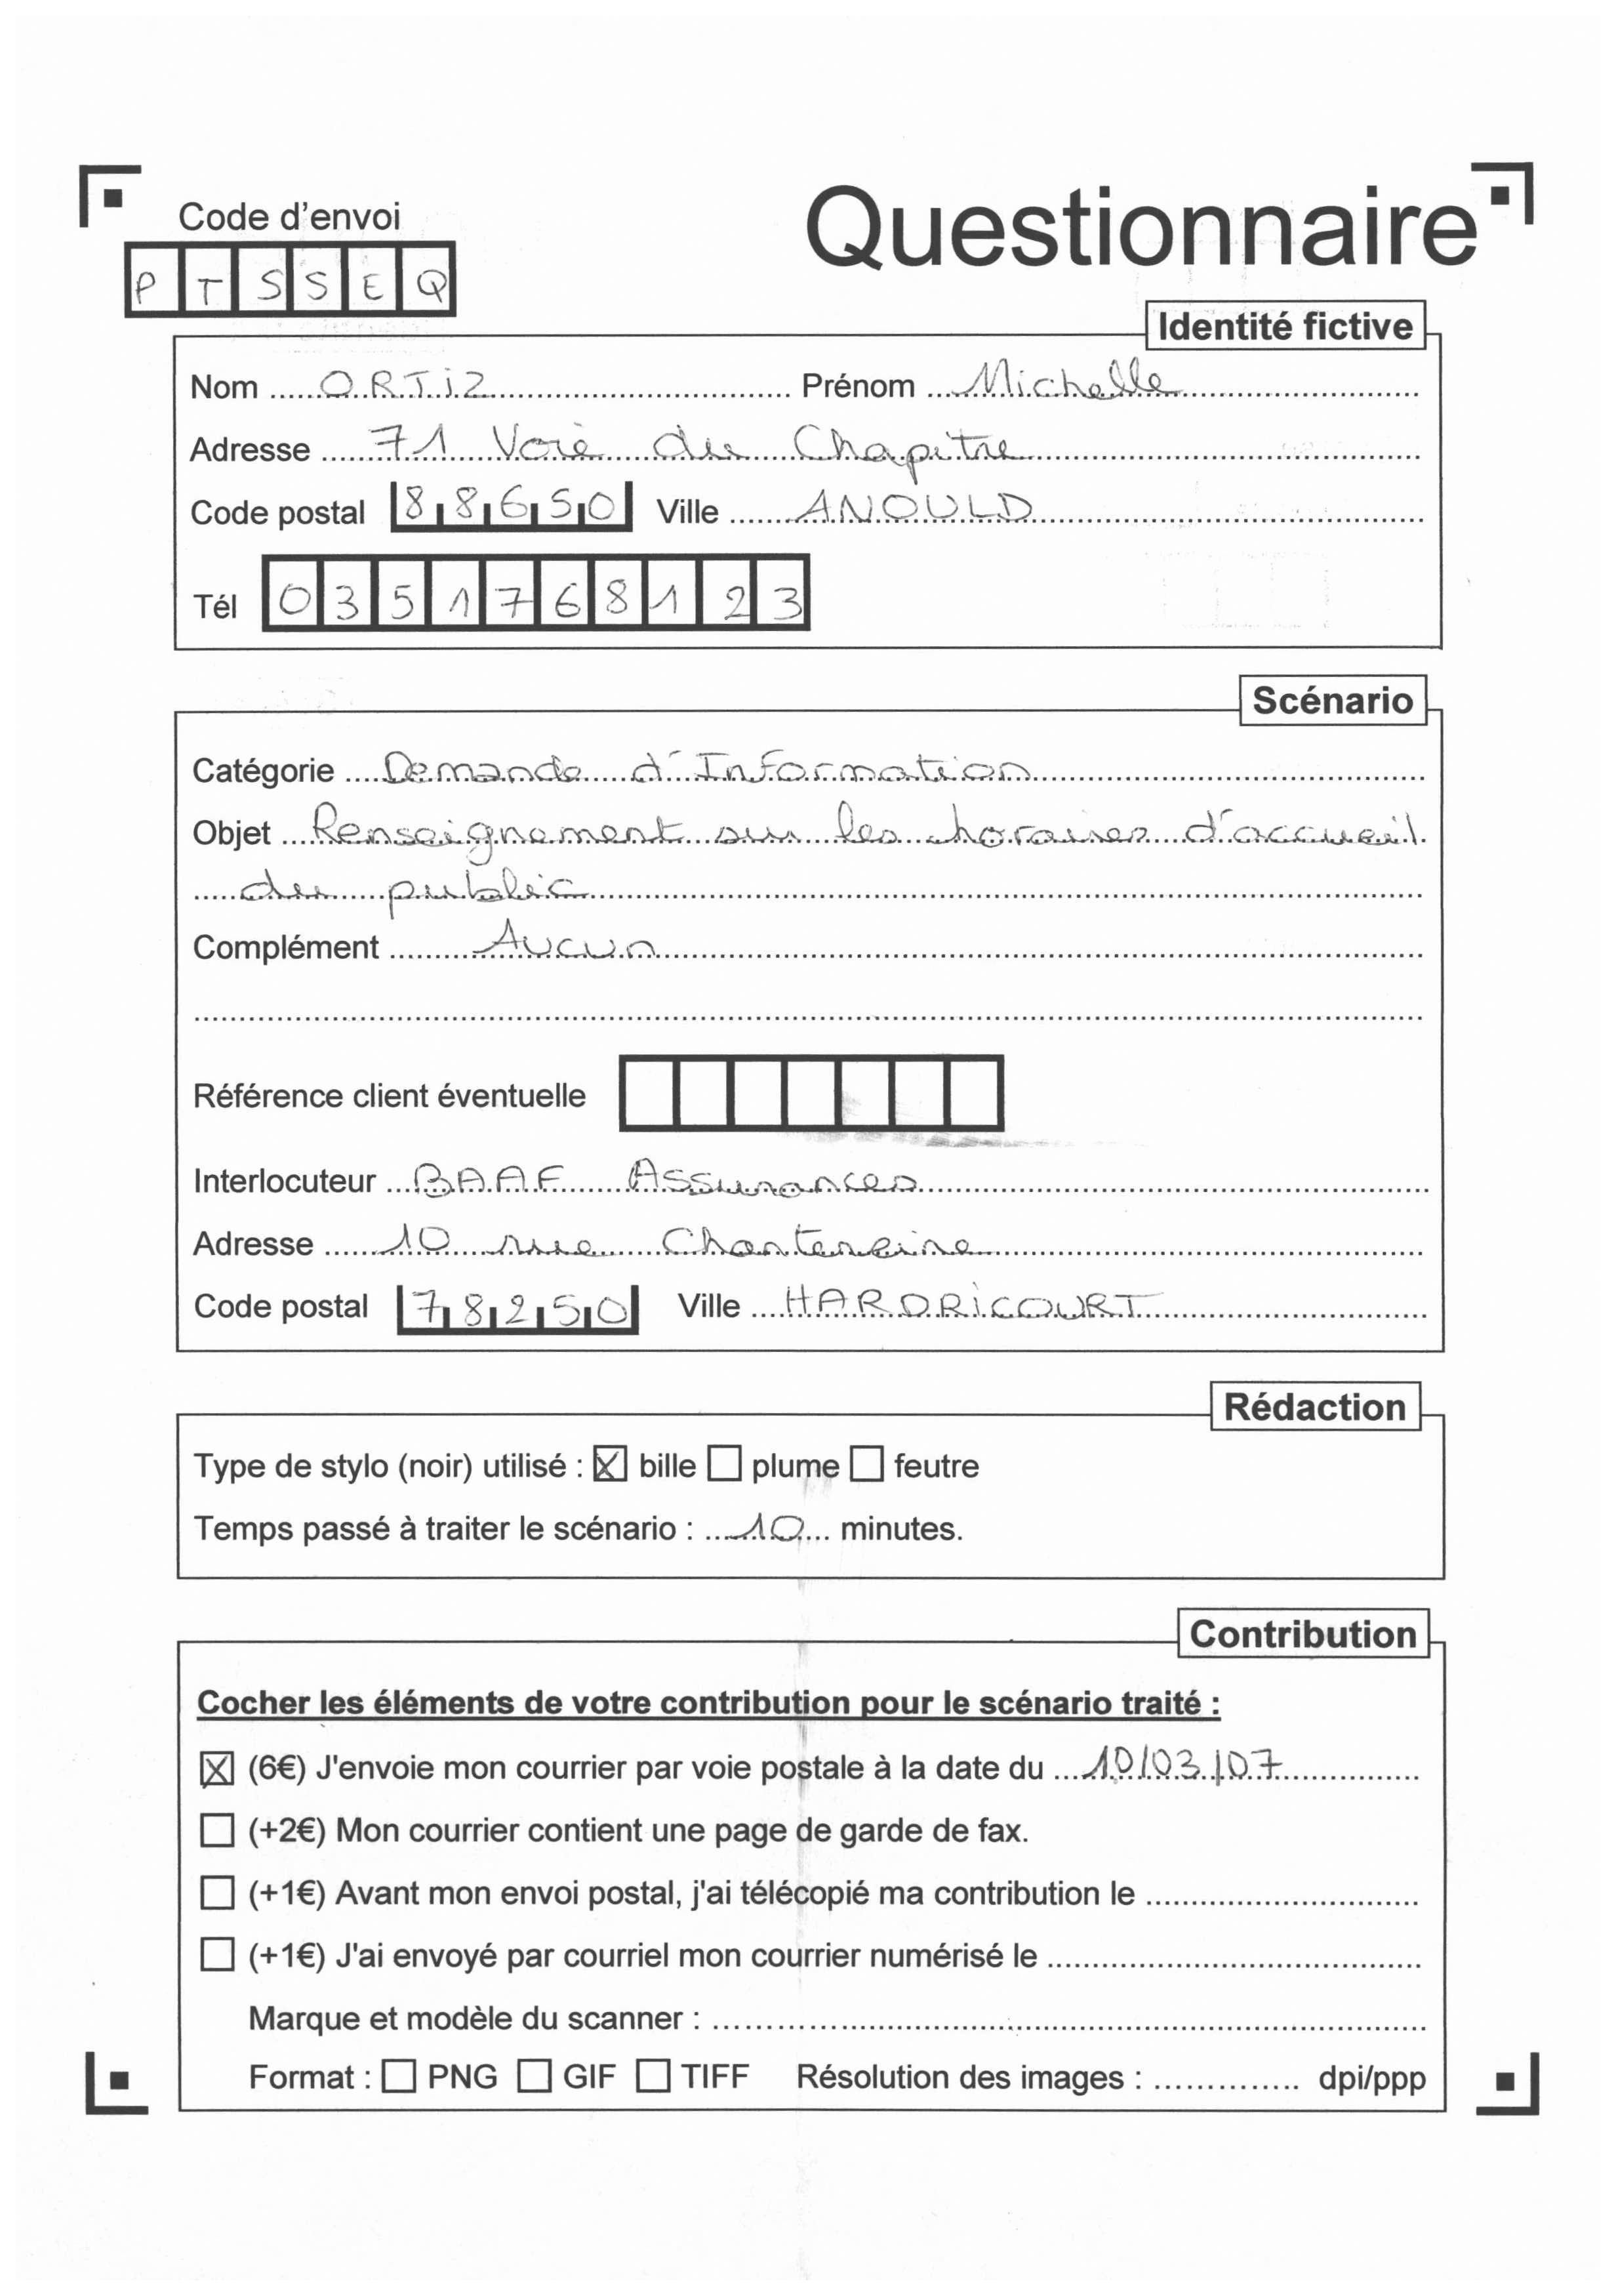 Code d'envoi
Questionnaire
P T S S E Q
Identité fictive
Nom ORTiZ Prénom Michelle
Adresse 71 Voie du Chapitre
Code postal 88650 Ville ANOULD
Tél 0351768123
Scénario
Catégorie Demande d'Information
Objet Renseignement sur les horaires d'accueil
du public
Complément Aucun
Référence client éventuelle
Interlocuteur BAAF Assurances
Adresse 10 rue Chantereine
Code postal 78250 Ville HARDRiCOURT
Rédaction
Type de stylo (noir) utilisé : bille plume feutre
Temps passé à traiter le scénario : 10 minutes.
Contribution
Cocher les éléments de votre contribution pour le scénario traité :
(6€) J'envoie mon courrier par voie postale à la date du 10/03/07
(+2€) Mon courrier contient une page de garde de fax.
(+1€) Avant mon envoi postal, j'ai télécopié ma contribution le
(+1€) J'ai envoyé par courriel mon courrier numérisé le
Marque et modèle du scanner :
Format : PNG GIF TIFF Résolution des images : dpi/ppp